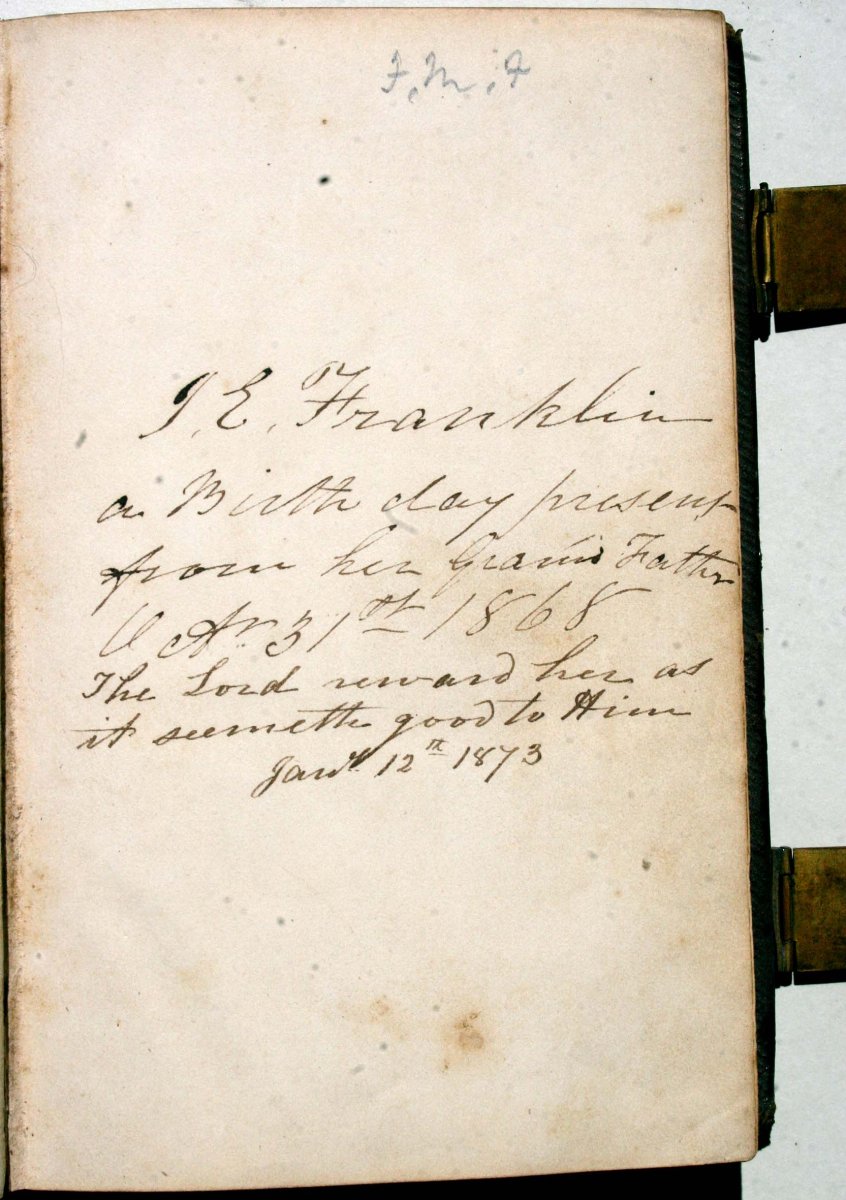 F. M. F
J. E. Franklin
a Birth day present
from her Grand Father
31st 1868
The Lord reward her as
it seemeth good to Him
Jany 12th 1873